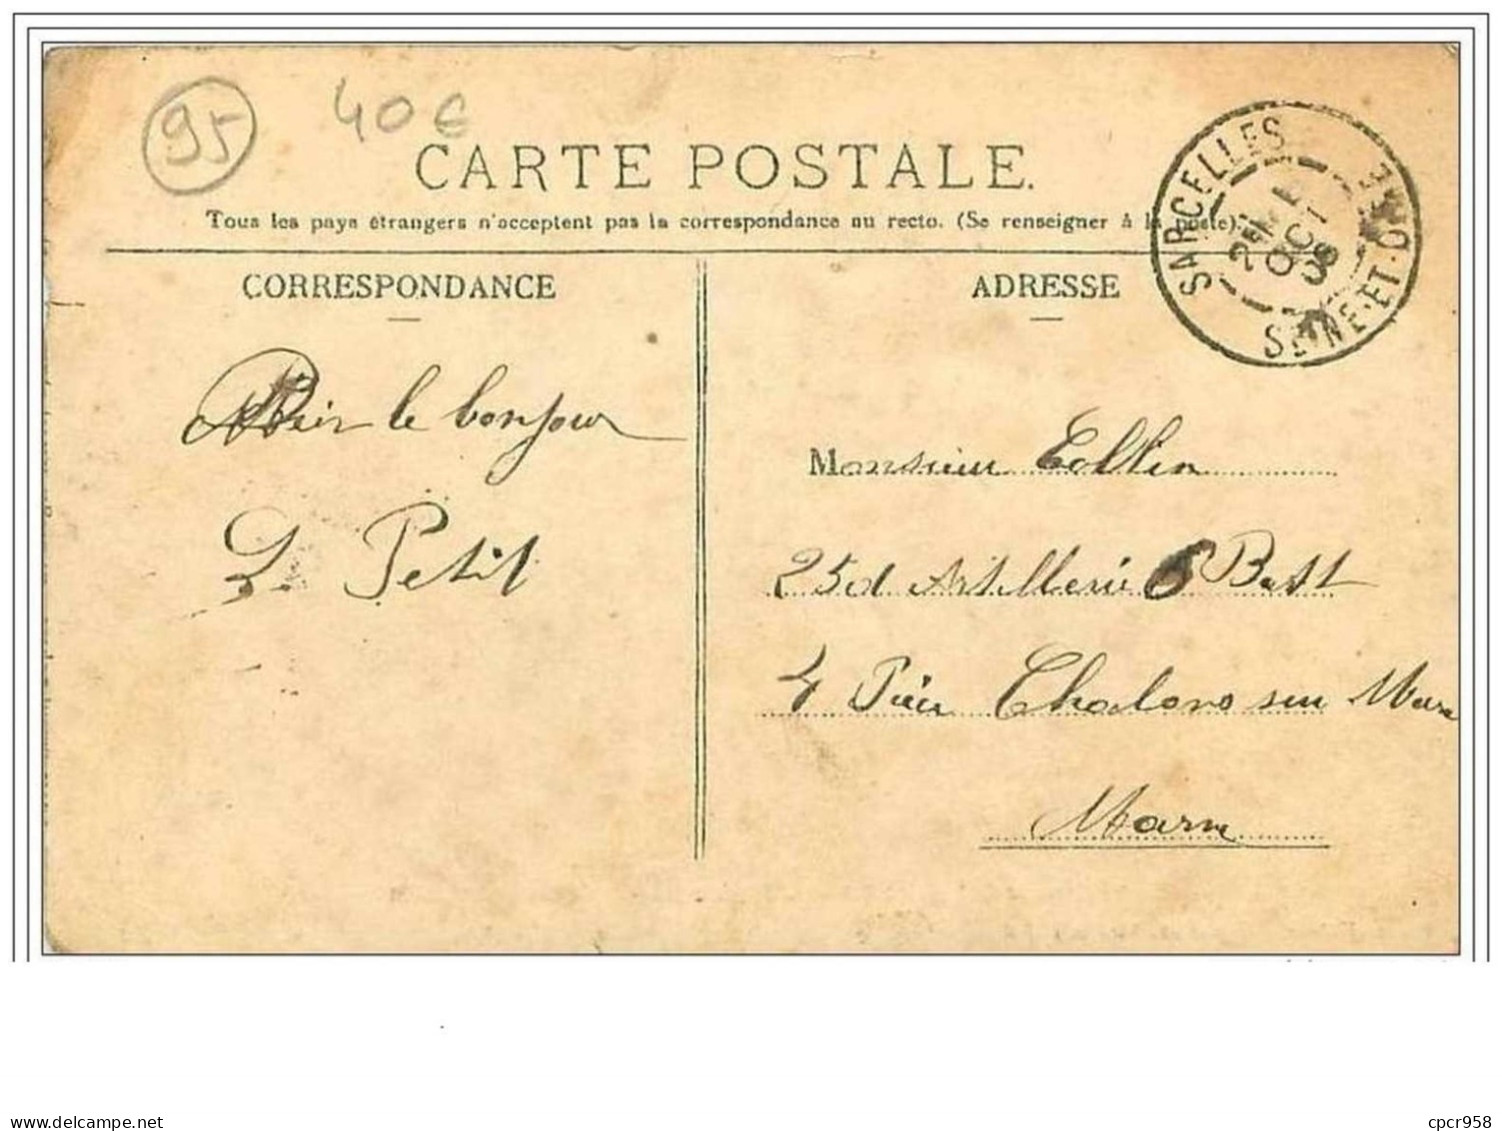 95
40€
CARTE POSTALE.
Tous les pays étrangers n'acceptent pas la correspondance au recto. (Se renseigner à la poste)
SARCELLES
OCT
08
SEINE-ET-OISE
CORRESPONDANCE
ADRESSE
le bonjour
Petit
Monsieur Collin
25d Artillerie 6 Batt
4 Chalons sur Marne
Marne
delcampe.net
cpcr958